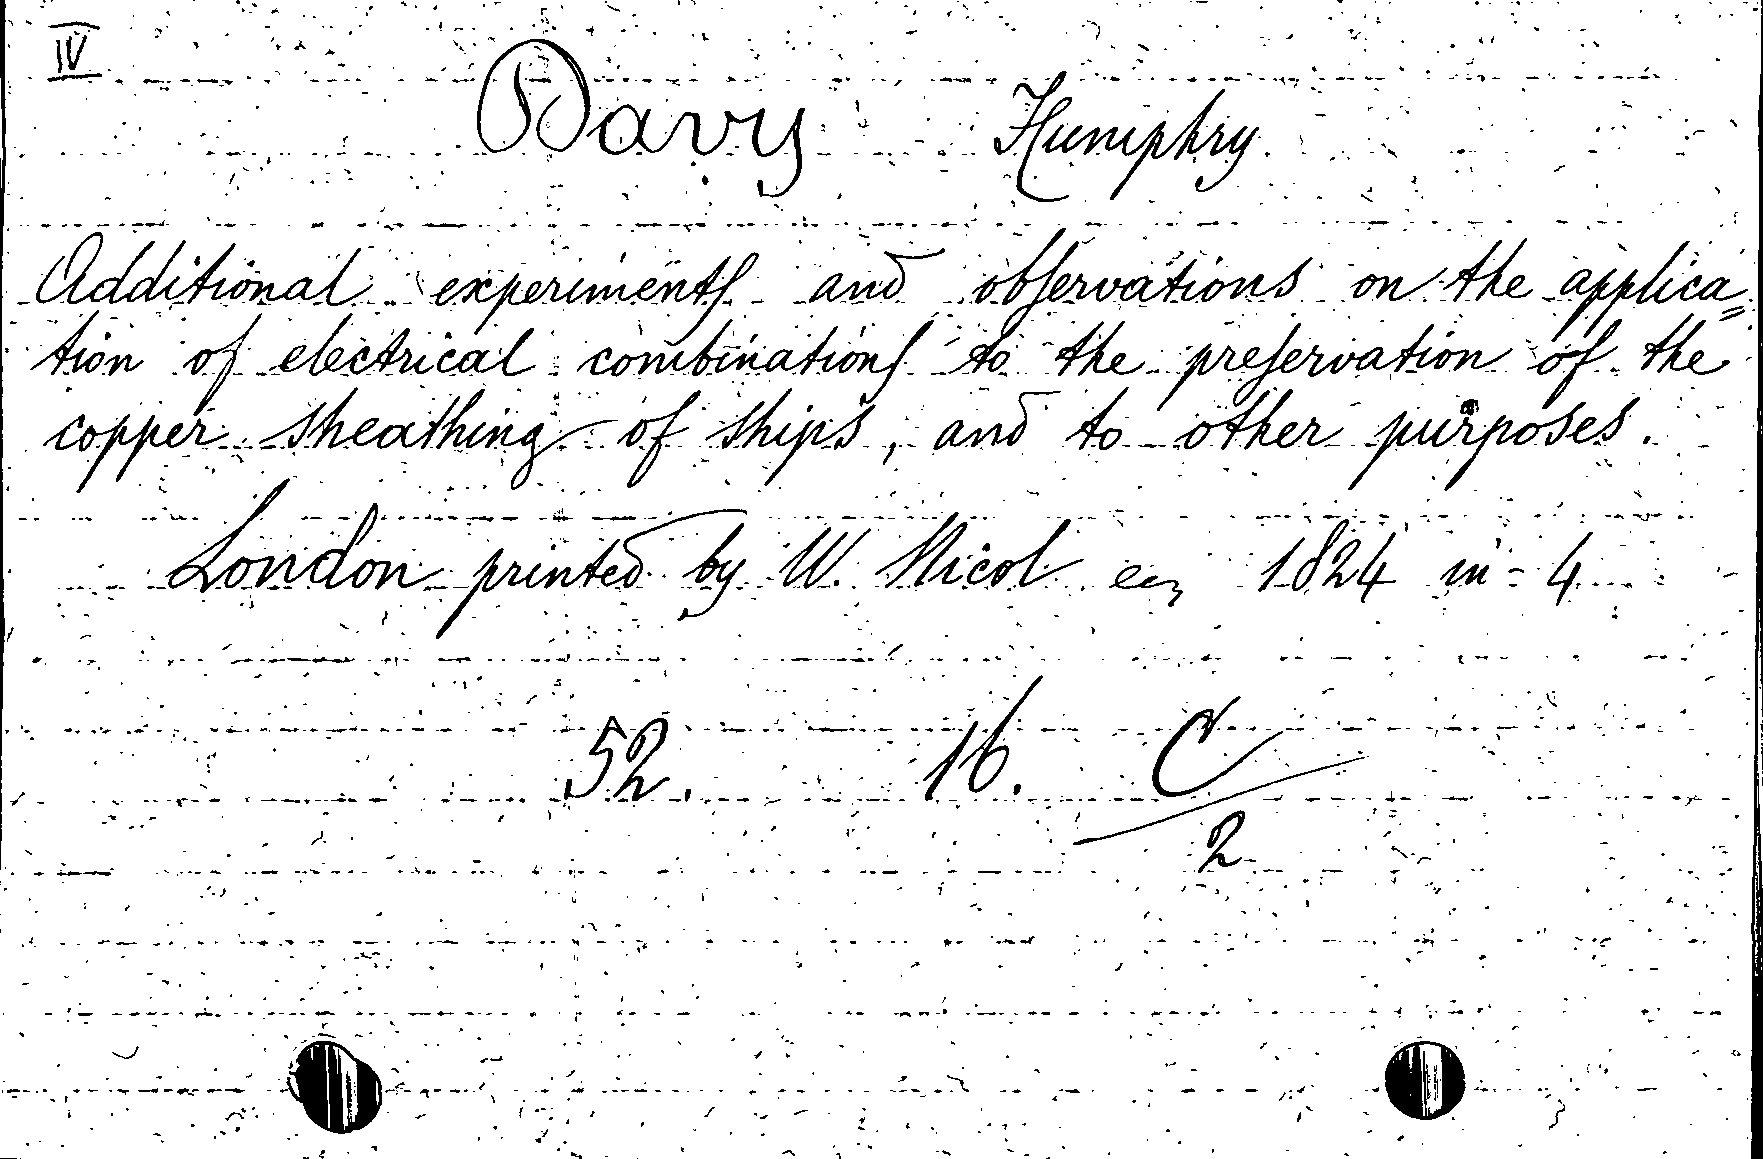 IV
Davy Humphry.
Additional experiments and observations on the applica=
tion of electrical combinations to the preservation of the
copper sheathing of ships, and to other purposes.
London printed by W. Nicol 1824 in-4
52. 16. C
2